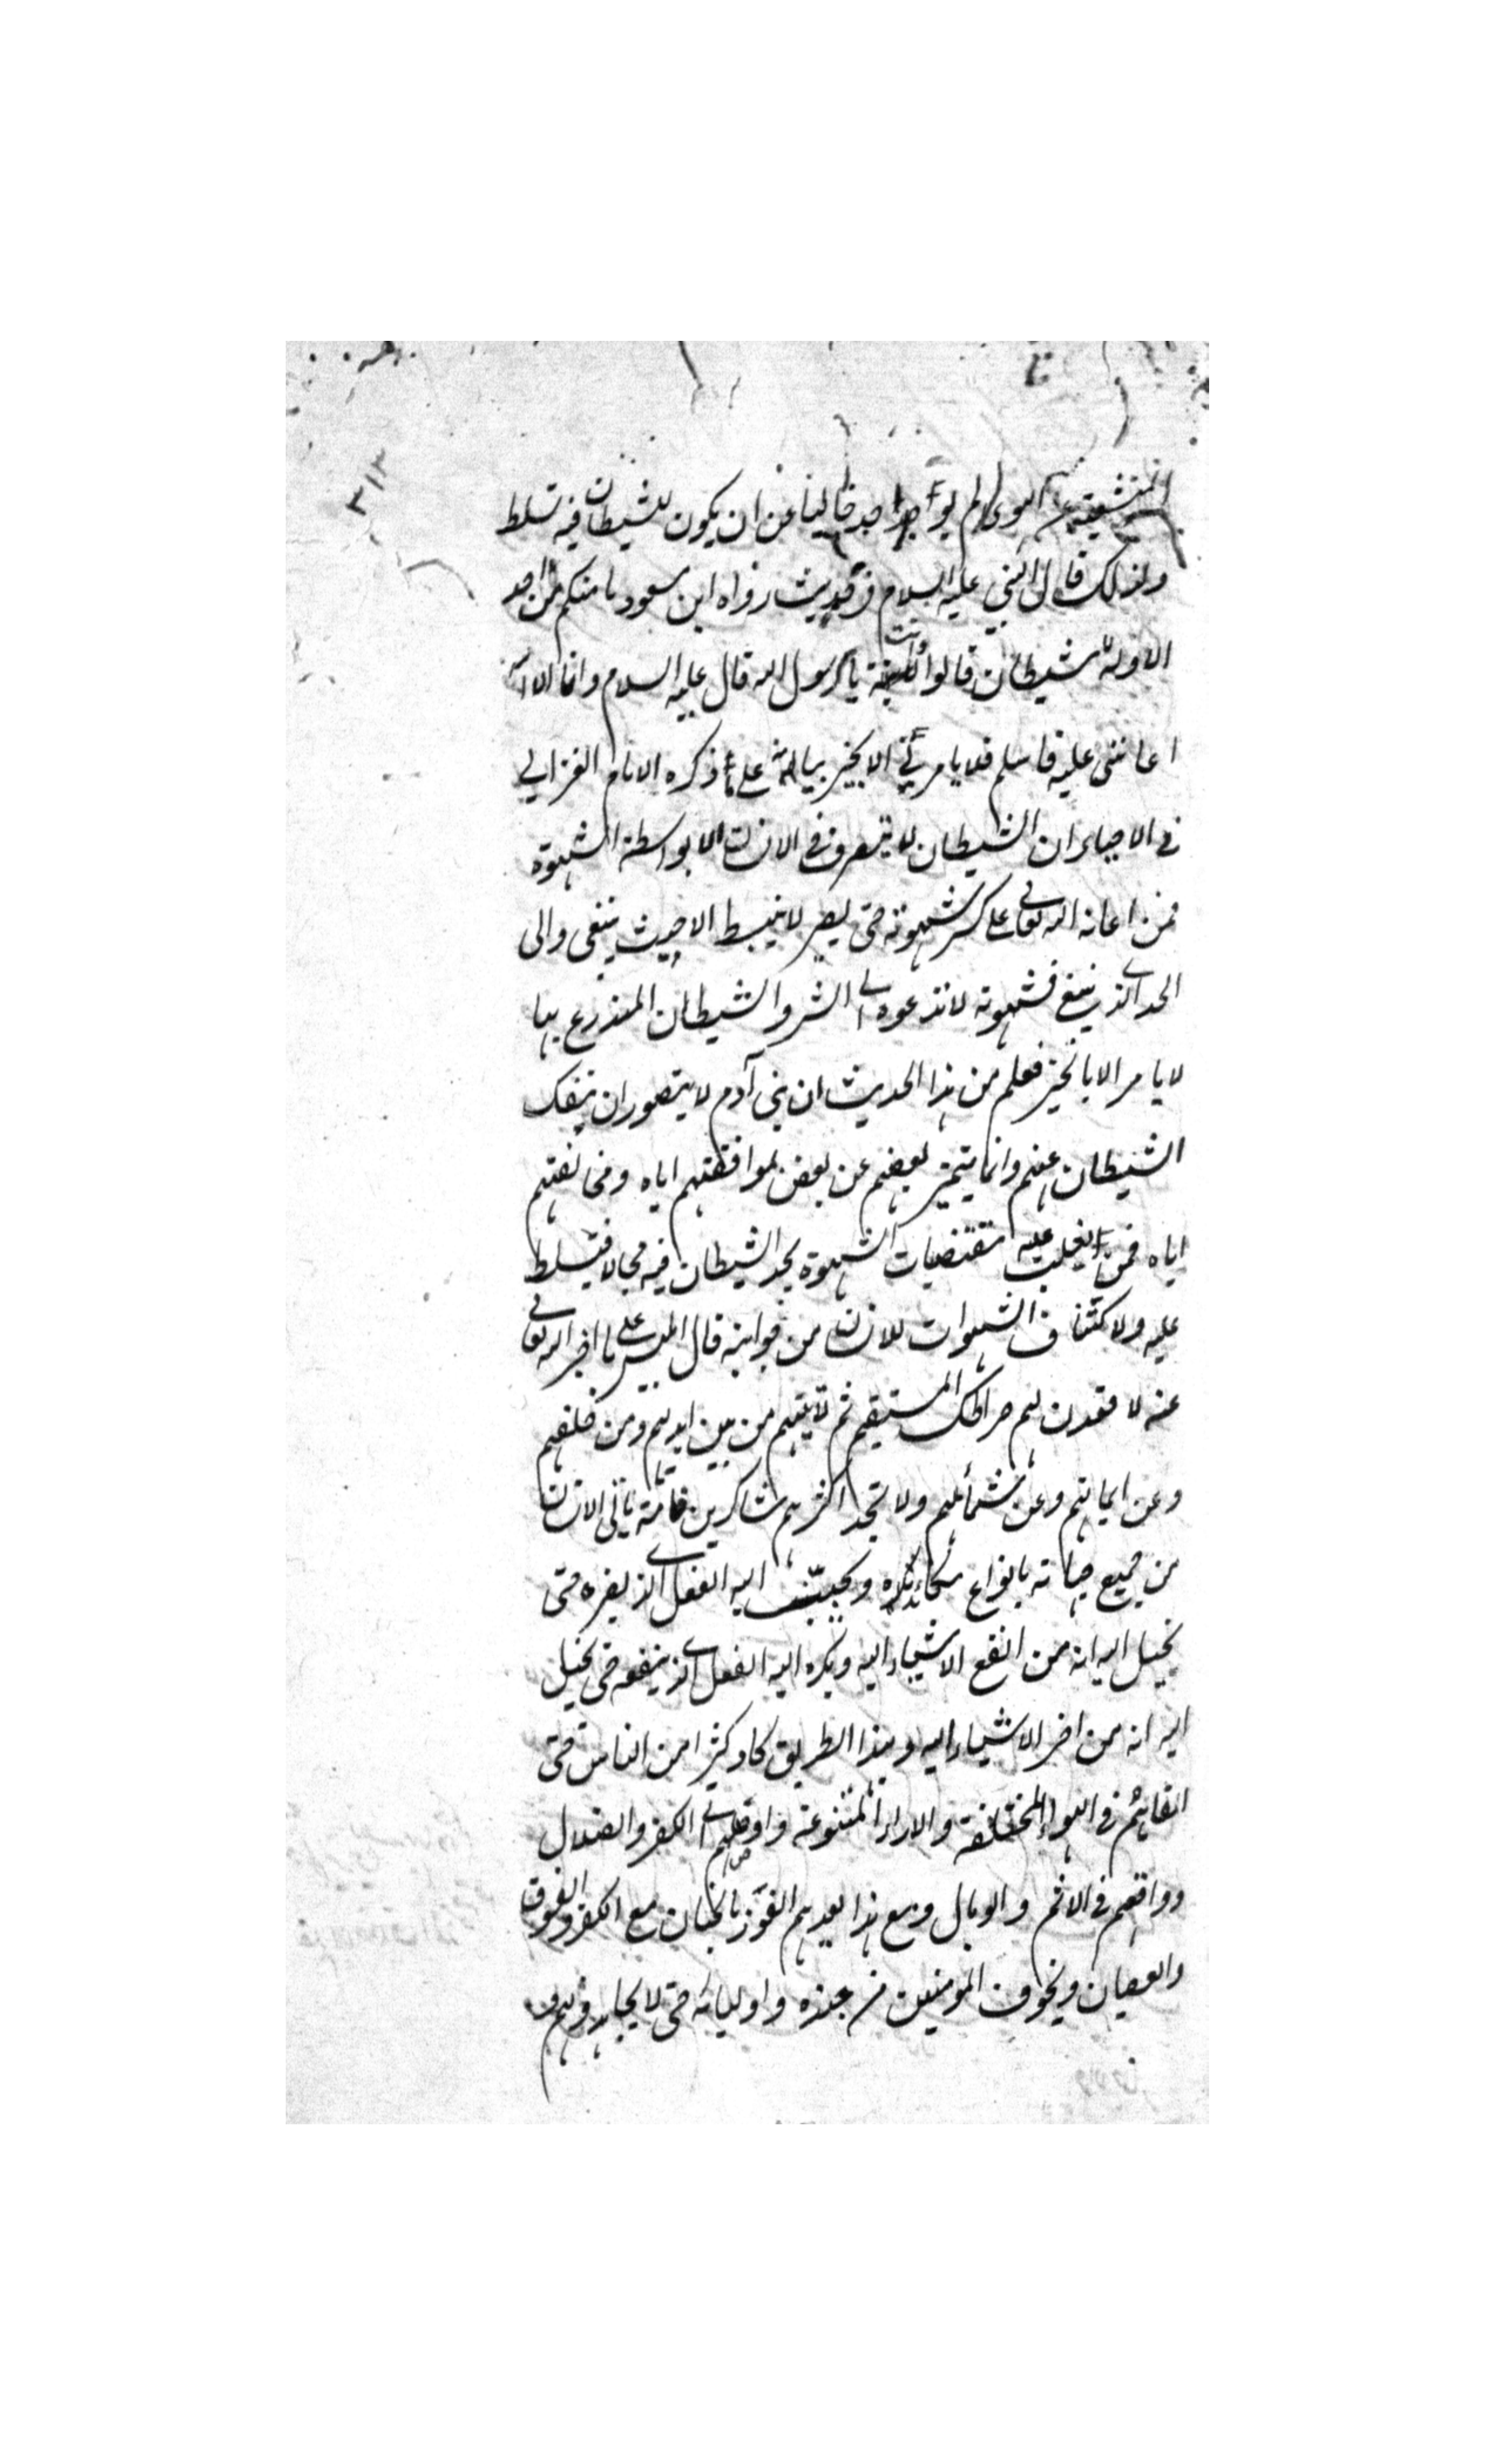 ٣١٣
المتشعبة عن الهوى لم يوجد احد خاليا عن ان يكون للشيطان فيه تسلط
ولذلك قال النبي عليه السلام في حديث رواه ابن مسعود ما منكم من احد
الا وله شيطان قالوا وانت يا رسول الله قال عليه السلام وانا الا ان
اعانني عليه فاسلم فلا يامرني الا بخير بيانه على ما ذكره الامام الغزالي
في الاحياء ان الشيطان لا يتصرف في الانسان الا بواسطة الشهوة
فمن اعانه الله تعالى على كسر شهوته حتى يصير لا ينبسط الا حيث ينبغي والى
الحد الذي ينبغي فشهوته لا تدعوه الى الشر والشيطان المتذرع بها
لا يامر الا بالخير فعلم من هذا الحديث ان بني آدم لا يتصور ان ينفك
الشيطان عنهم وانما يتميز بعضهم عن بعض بموافقتهم اياه ومخالفتهم
اياه فمن يغلب عليه مقتضيات الشهوة يجد الشيطان فيه مجالا فيتسلط
عليه ولاكتناف الشهوات للانسان من جوانبه قال ابليس على ما اخبر الله تعالى
عنه لاقعدن لهم صراطك المستقيم ثم لآتينهم من بين ايديهم ومن خلفهم
وعن ايمانهم وعن شمائلهم ولا تجد اكثرهم شاكرين فانه ياتي الانسان
من جميع جهاته بانواع مكائده ويحبب اليه الفعل الذي يضره حتى
يخيل اليه انه من انفع الاشياء اليه ويكره اليه الفعل الذي ينفعه حتى يخيل
اليه انه من اضر الاشياء اليه وبهذا الطريق كاد كثيرا من الناس حتى
القاهم في الاهواء المختلفة والاراء المتنوعة واوصلهم الى الكفر والضلال
وواقعهم في الاثم والوبال ومع هذا يعدهم الفوز بالجنان مع الكفر والفسوق
والعصيان ويخوف المومنين من جنده واوليائه حتى لا يجاهدونهم ولا